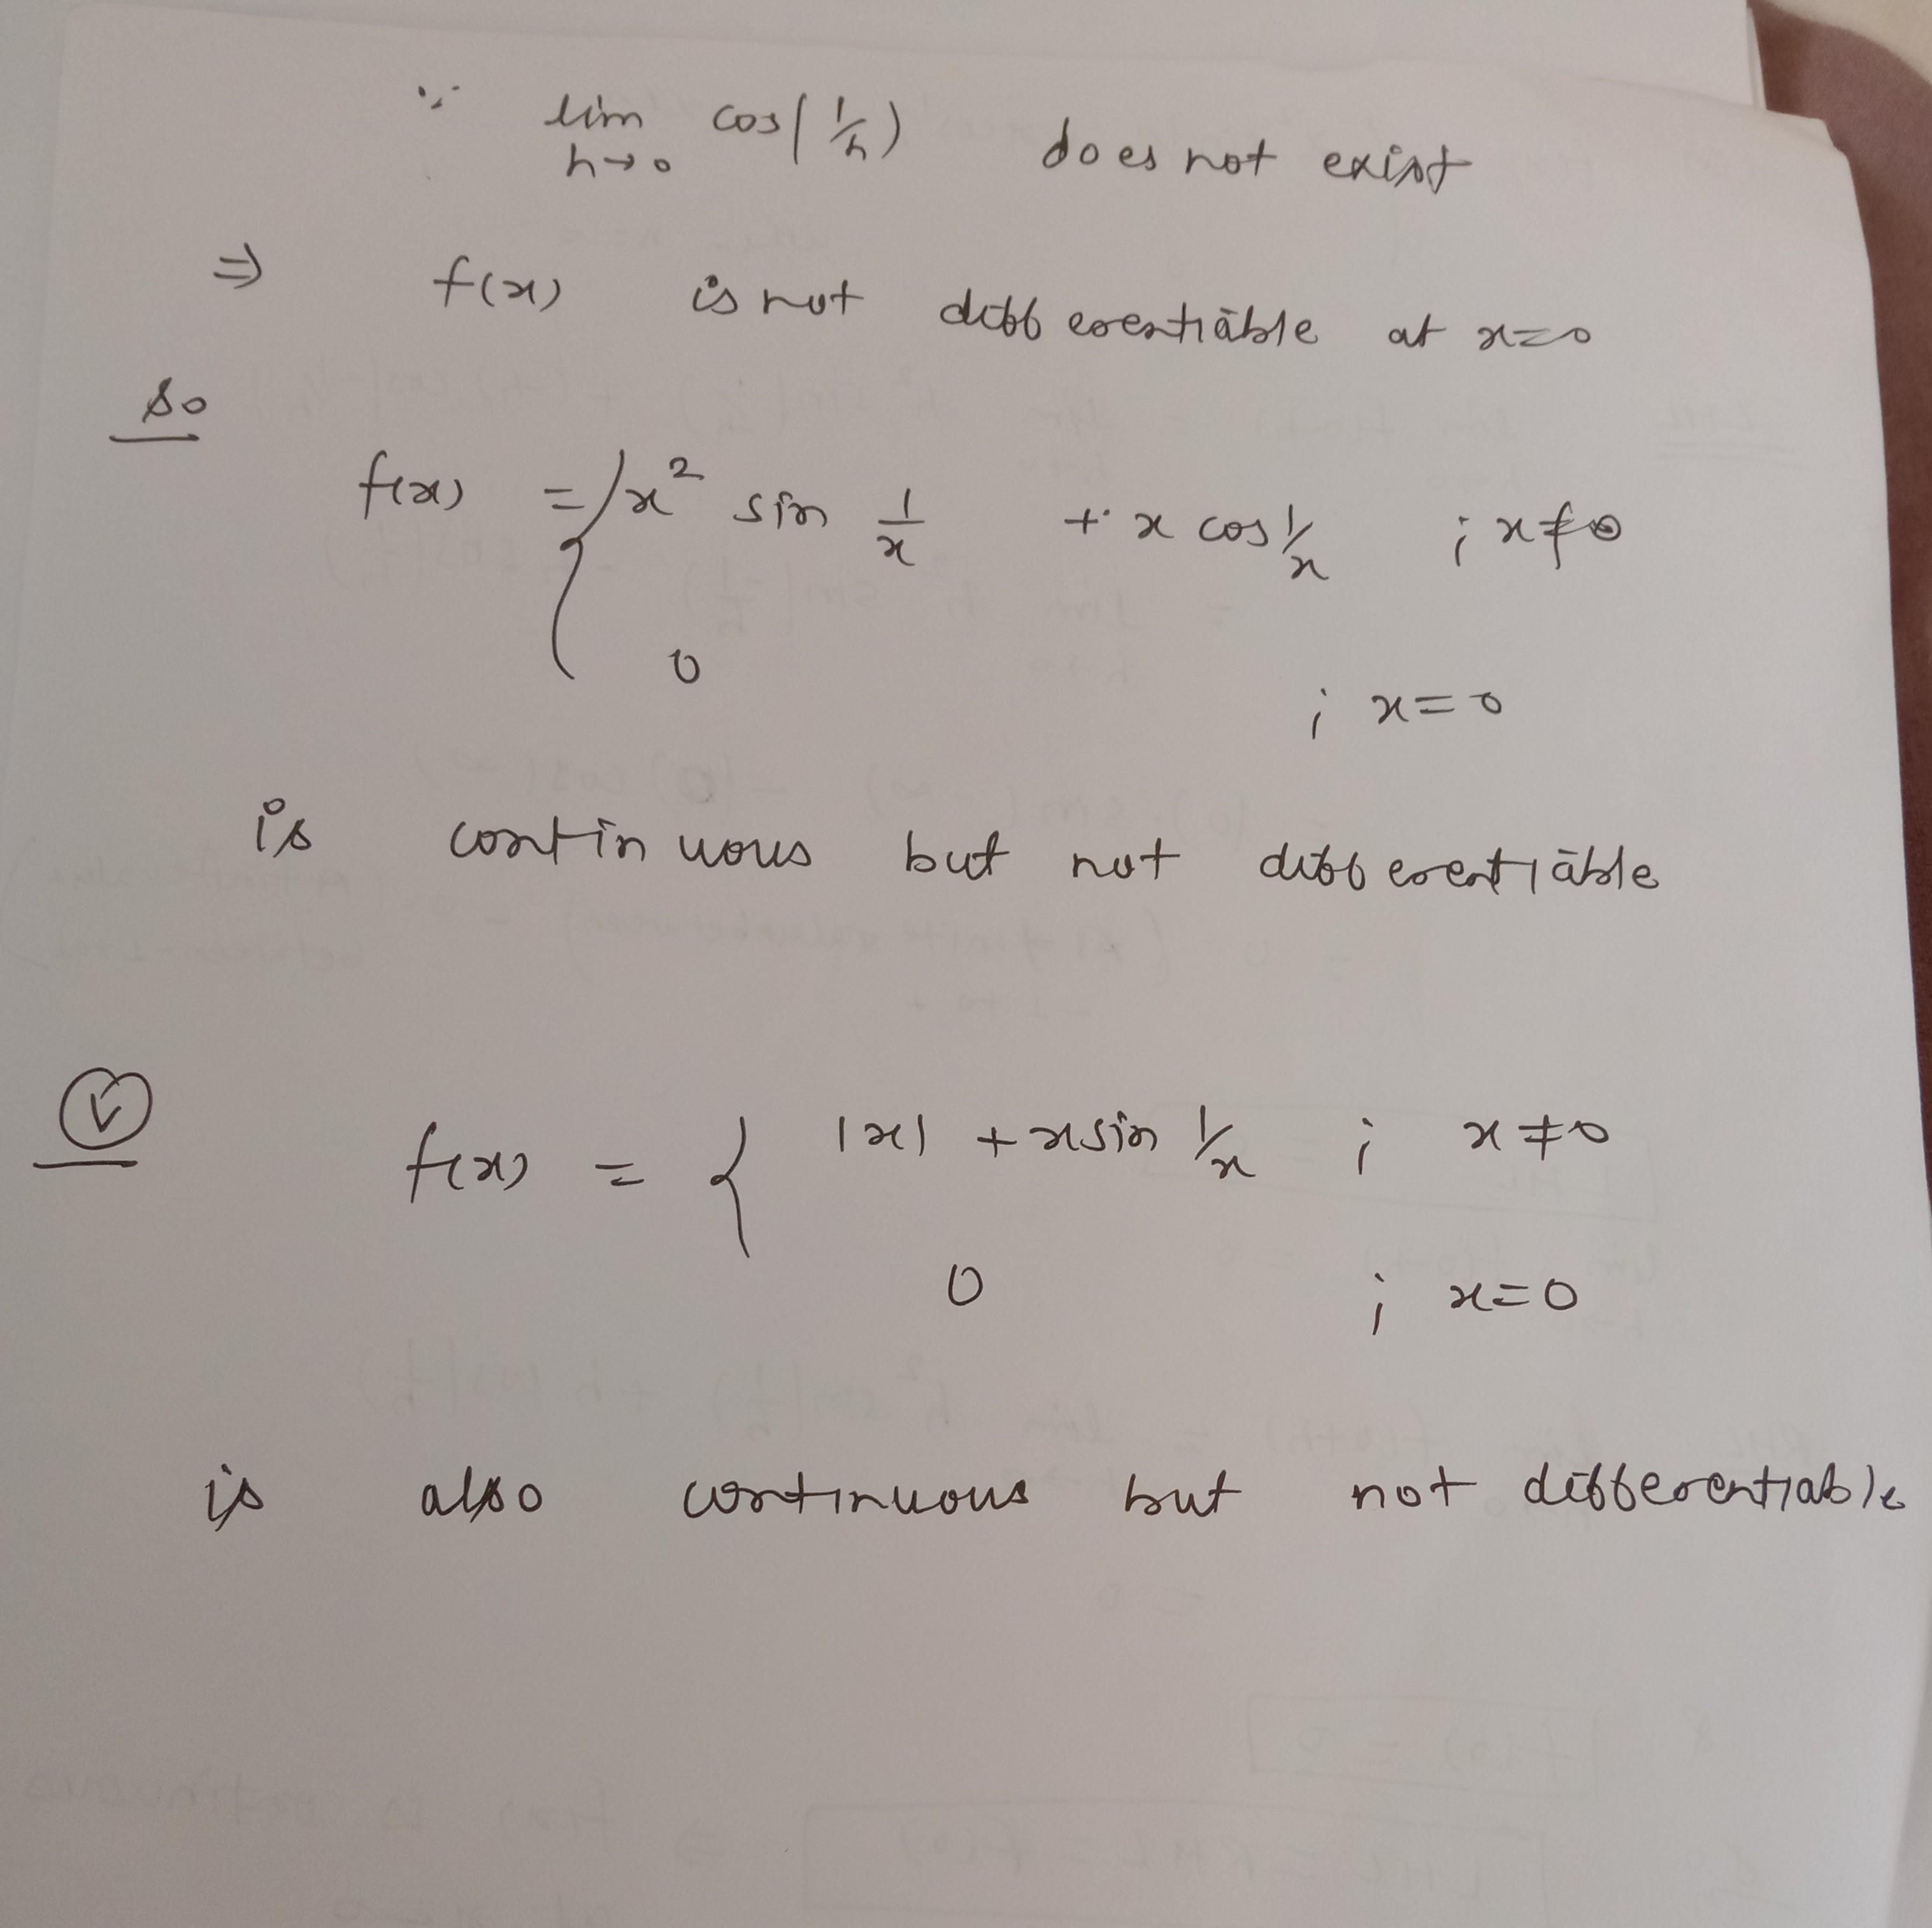 ∵ lim cos(1/h) does not exist
h→0
⇒ f(x) is not differentiable at x=0
So
f(x) = { x² sin 1/x + x cos 1/x ; x≠0
0 ; x=0
is continuous but not differentiable
(V) f(x) = { |x| + x sin 1/x ; x≠0
0 ; x=0
is also continuous but not differentiable